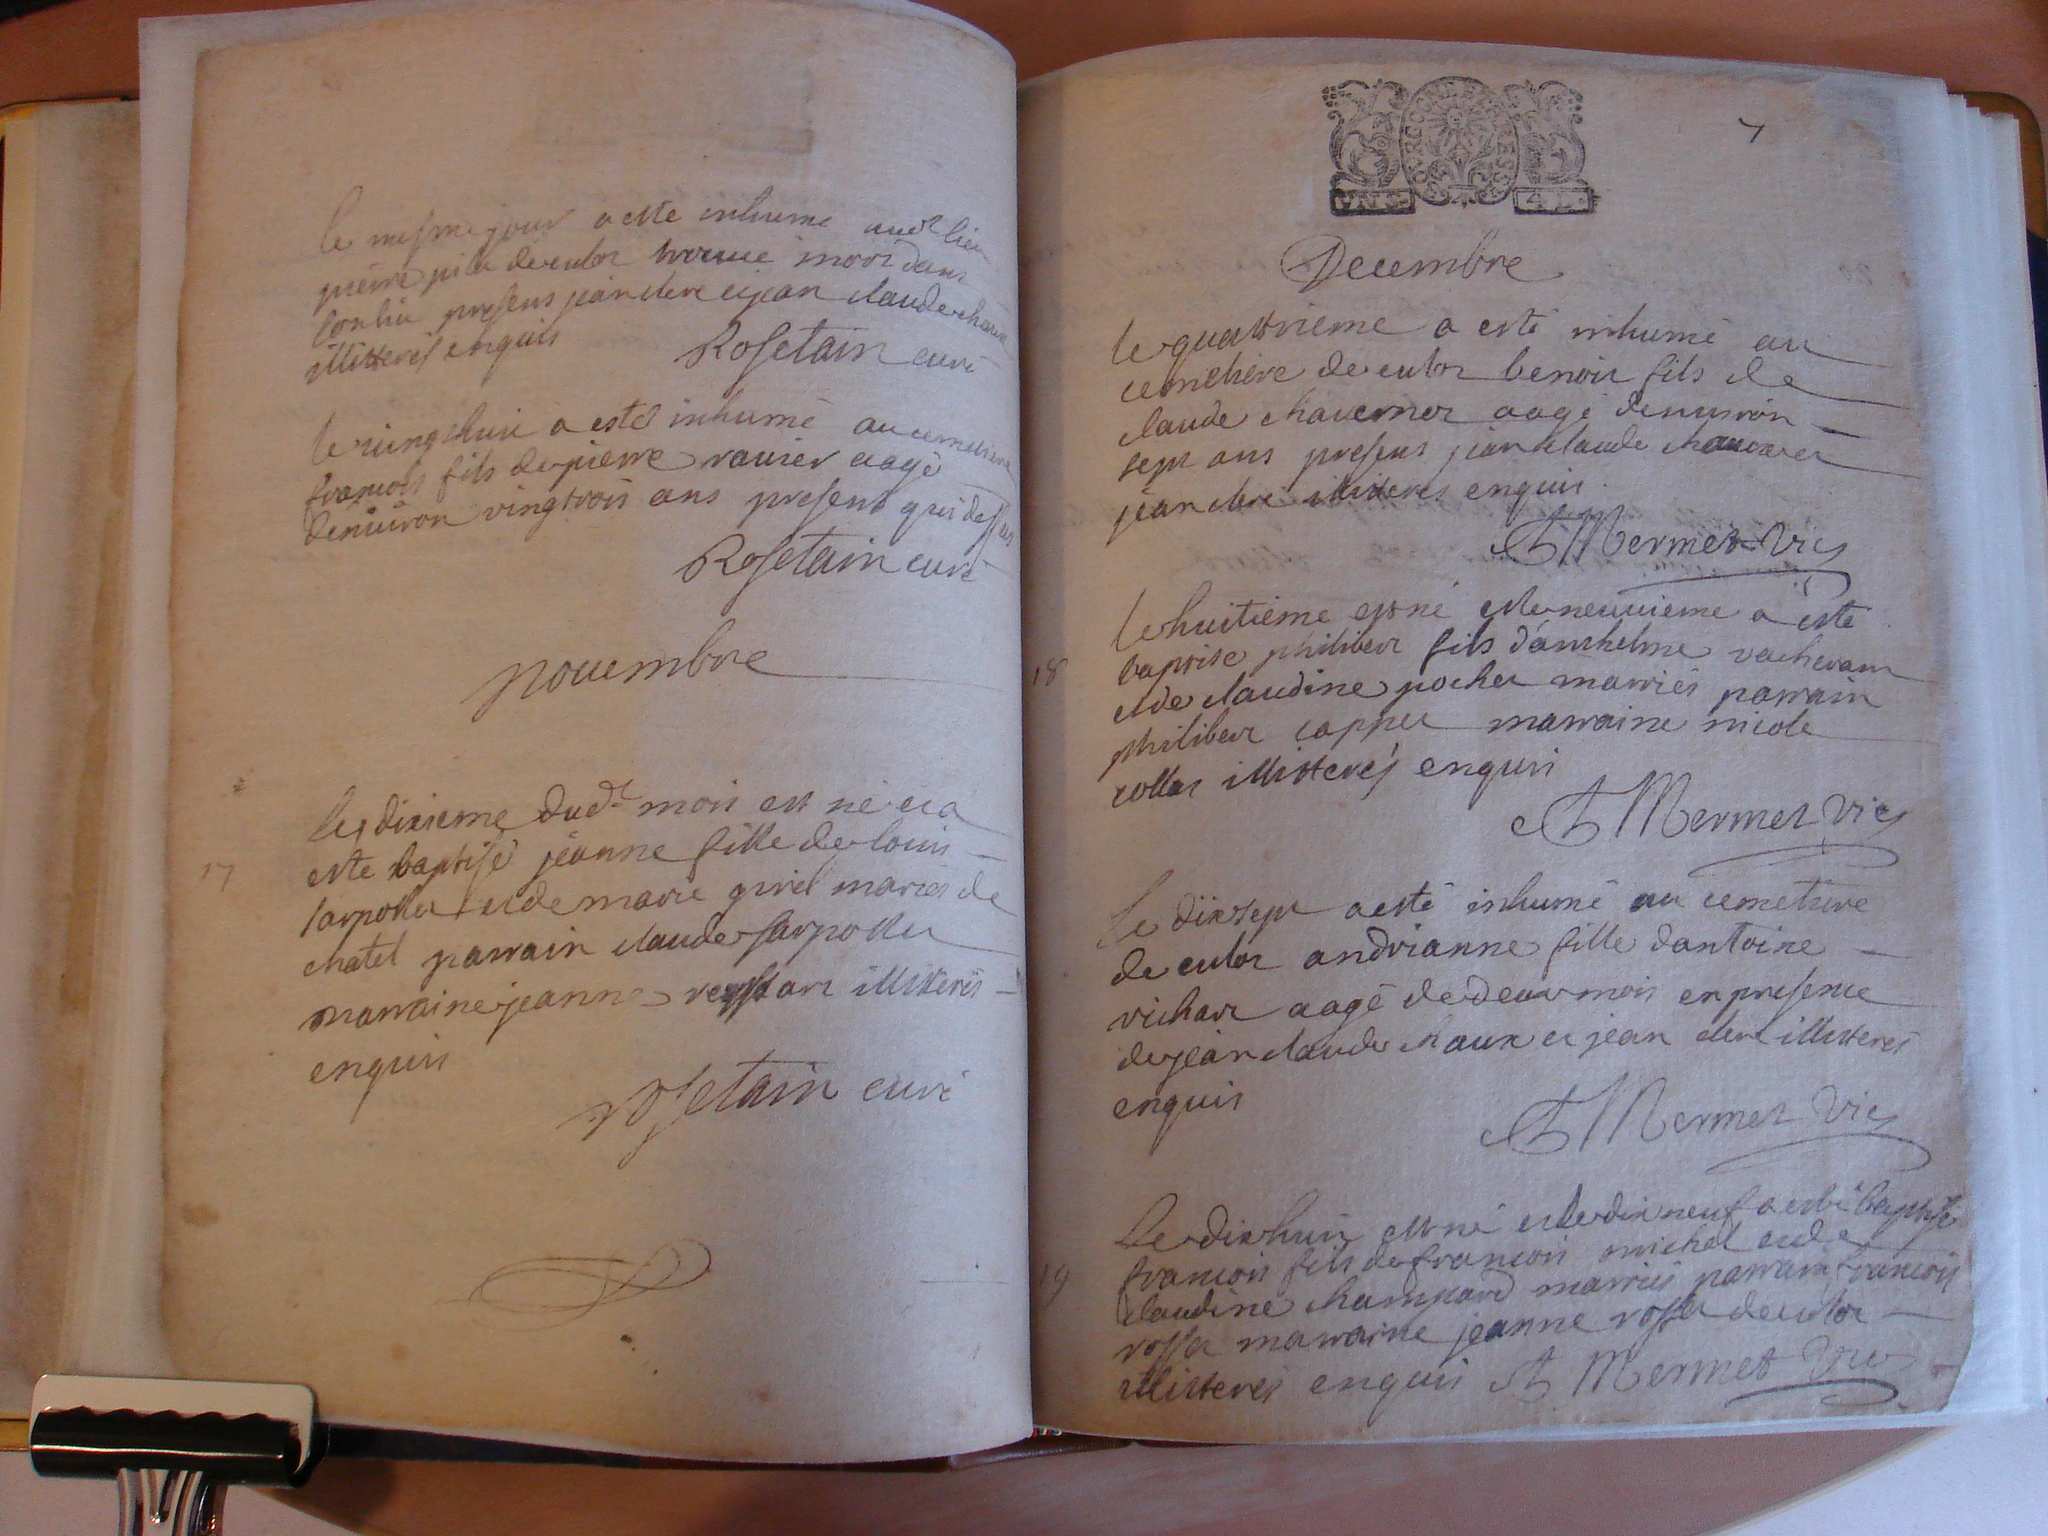 le mesme jour a este inhumé aud.t lieu
pierre de culoz trouué mort dans
presens jean clerc et jean claude chaux
illitterés enquis
Rosetain curé
le vingthuit a esté inhumé au cemetiere
francois fils de pierre rauier aagé
denuiron vingtrois ans presens qui dessus
Rosetain curé
nouembre
le dixieme dud.t mois est né et a
17
este baptisé jeanne fille de louis
sarpollet et de marie mariés de
chatel parrain claude sarpollet
marraine jeanne illitterés
enquis
rosetain curé
7
BOVRGOGNE BRESSE
VN S. 4 D.
Decembre
le quattrieme a esté inhumé au
cemetiere de culoz benoit fils de
claude chauerner aagé denuiron
sept ans presens jean claude chaux et
jean clerc illitteres enquis.
A Mermet Vic
le huitieme est né et le neuuieme a esté
18
baptisé philibert fils d'anthelme vacheran
et de claudine pochet marriés parrain
philibert cappet marraine nicole
collet illitterés enquis
A Mermet Vic
Le dixsept a esté inhumé au cemetiere
de culoz andrianne fille dantoine
richart aagé de deux mois en presence
de jean claude chaux et jean clerc illitterés
enquis
A Mermet Vic
Le dixhuit est né et le dixneuf a esté baptisé
francois fils de francois michel et de
19
claudine champard marriés parrain francois
rosset marraine jeanne rosset de culoz
illitterés enquis A Mermet Vic